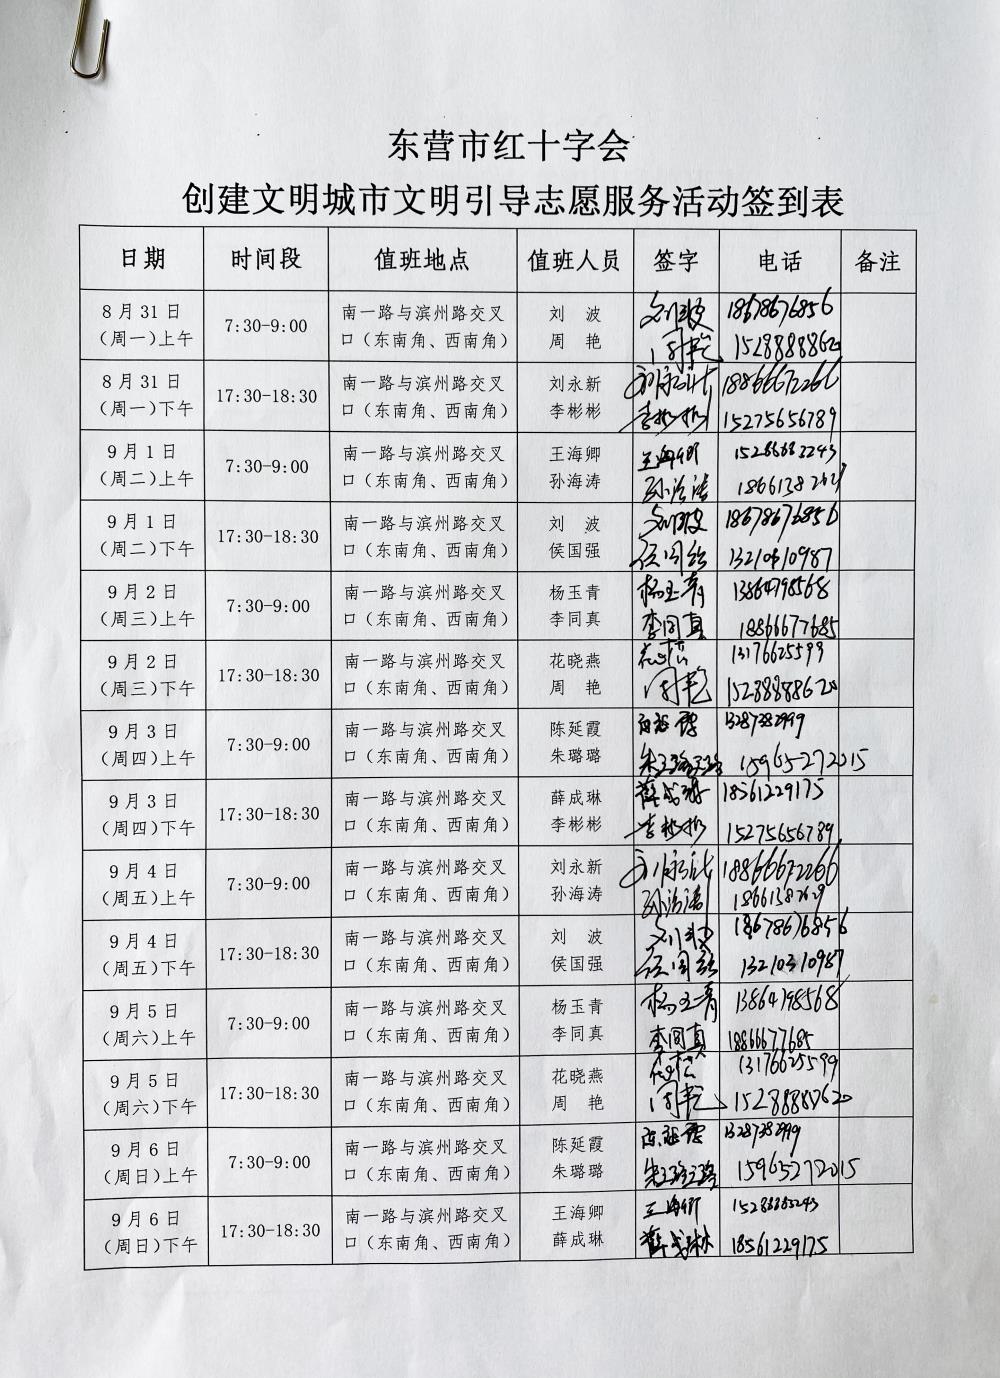 东营市红十字会
创建文明城市文明引导志愿服务活动签到表
日期 时间段 值班地点 值班人员 签字 电话 备注
8月31日 南一路与滨州路交叉 刘 波 刘波 18678676856
(周一)上午 7:30-9:00 口(东南角、西南角) 周 艳 周艳 15288888620
8月31日 南一路与滨州路交叉 刘永新 刘永新 18866672266
(周一)下午 17:30-18:30 口(东南角、西南角) 李彬彬 李彬彬 15275656789
9月1日 南一路与滨州路交叉 王海卿 王海卿
(周二)上午 7:30-9:00 口(东南角、西南角) 孙海涛 孙海涛
9月1日 南一路与滨州路交叉 刘 波 刘波 18678676856
(周二)下午 17:30-18:30 口(东南角、西南角) 侯国强 侯国强
9月2日 南一路与滨州路交叉 杨玉青 杨玉青 13864798568
(周三)上午 7:30-9:00 口(东南角、西南角) 李同真 李同真 18866677685
9月2日 南一路与滨州路交叉 花晓燕 13176625599
(周三)下午 17:30-18:30 口(东南角、西南角) 周 艳 周艳 15288888620
9月3日 南一路与滨州路交叉 陈延霞 陈延霞 13287382999
(周四)上午 7:30-9:00 口(东南角、西南角) 朱璐璐 朱璐璐 15965272015
9月3日 南一路与滨州路交叉 薛成琳 薛成琳 18561229175
(周四)下午 17:30-18:30 口(东南角、西南角) 李彬彬 李彬彬 15275656789
9月4日 南一路与滨州路交叉 刘永新 刘永新 18866672266
(周五)上午 7:30-9:00 口(东南角、西南角) 孙海涛 孙海涛 18661382629
9月4日 南一路与滨州路交叉 刘 波 刘波 18678676856
(周五)下午 17:30-18:30 口(东南角、西南角) 侯国强 侯国强 13210310987
9月5日 南一路与滨州路交叉 杨玉青 杨玉青 13864798568
(周六)上午 7:30-9:00 口(东南角、西南角) 李同真 李同真 18866677685
9月5日 南一路与滨州路交叉 花晓燕 13176625599
(周六)下午 17:30-18:30 口(东南角、西南角) 周 艳 周艳 15288888620
9月6日 南一路与滨州路交叉 陈延霞 陈延霞 13287382999
(周日)上午 7:30-9:00 口(东南角、西南角) 朱璐璐 朱璐璐 15965272015
9月6日 南一路与滨州路交叉 王海卿 王海卿
(周日)下午 17:30-18:30 口(东南角、西南角) 薛成琳 薛成琳 18561229175